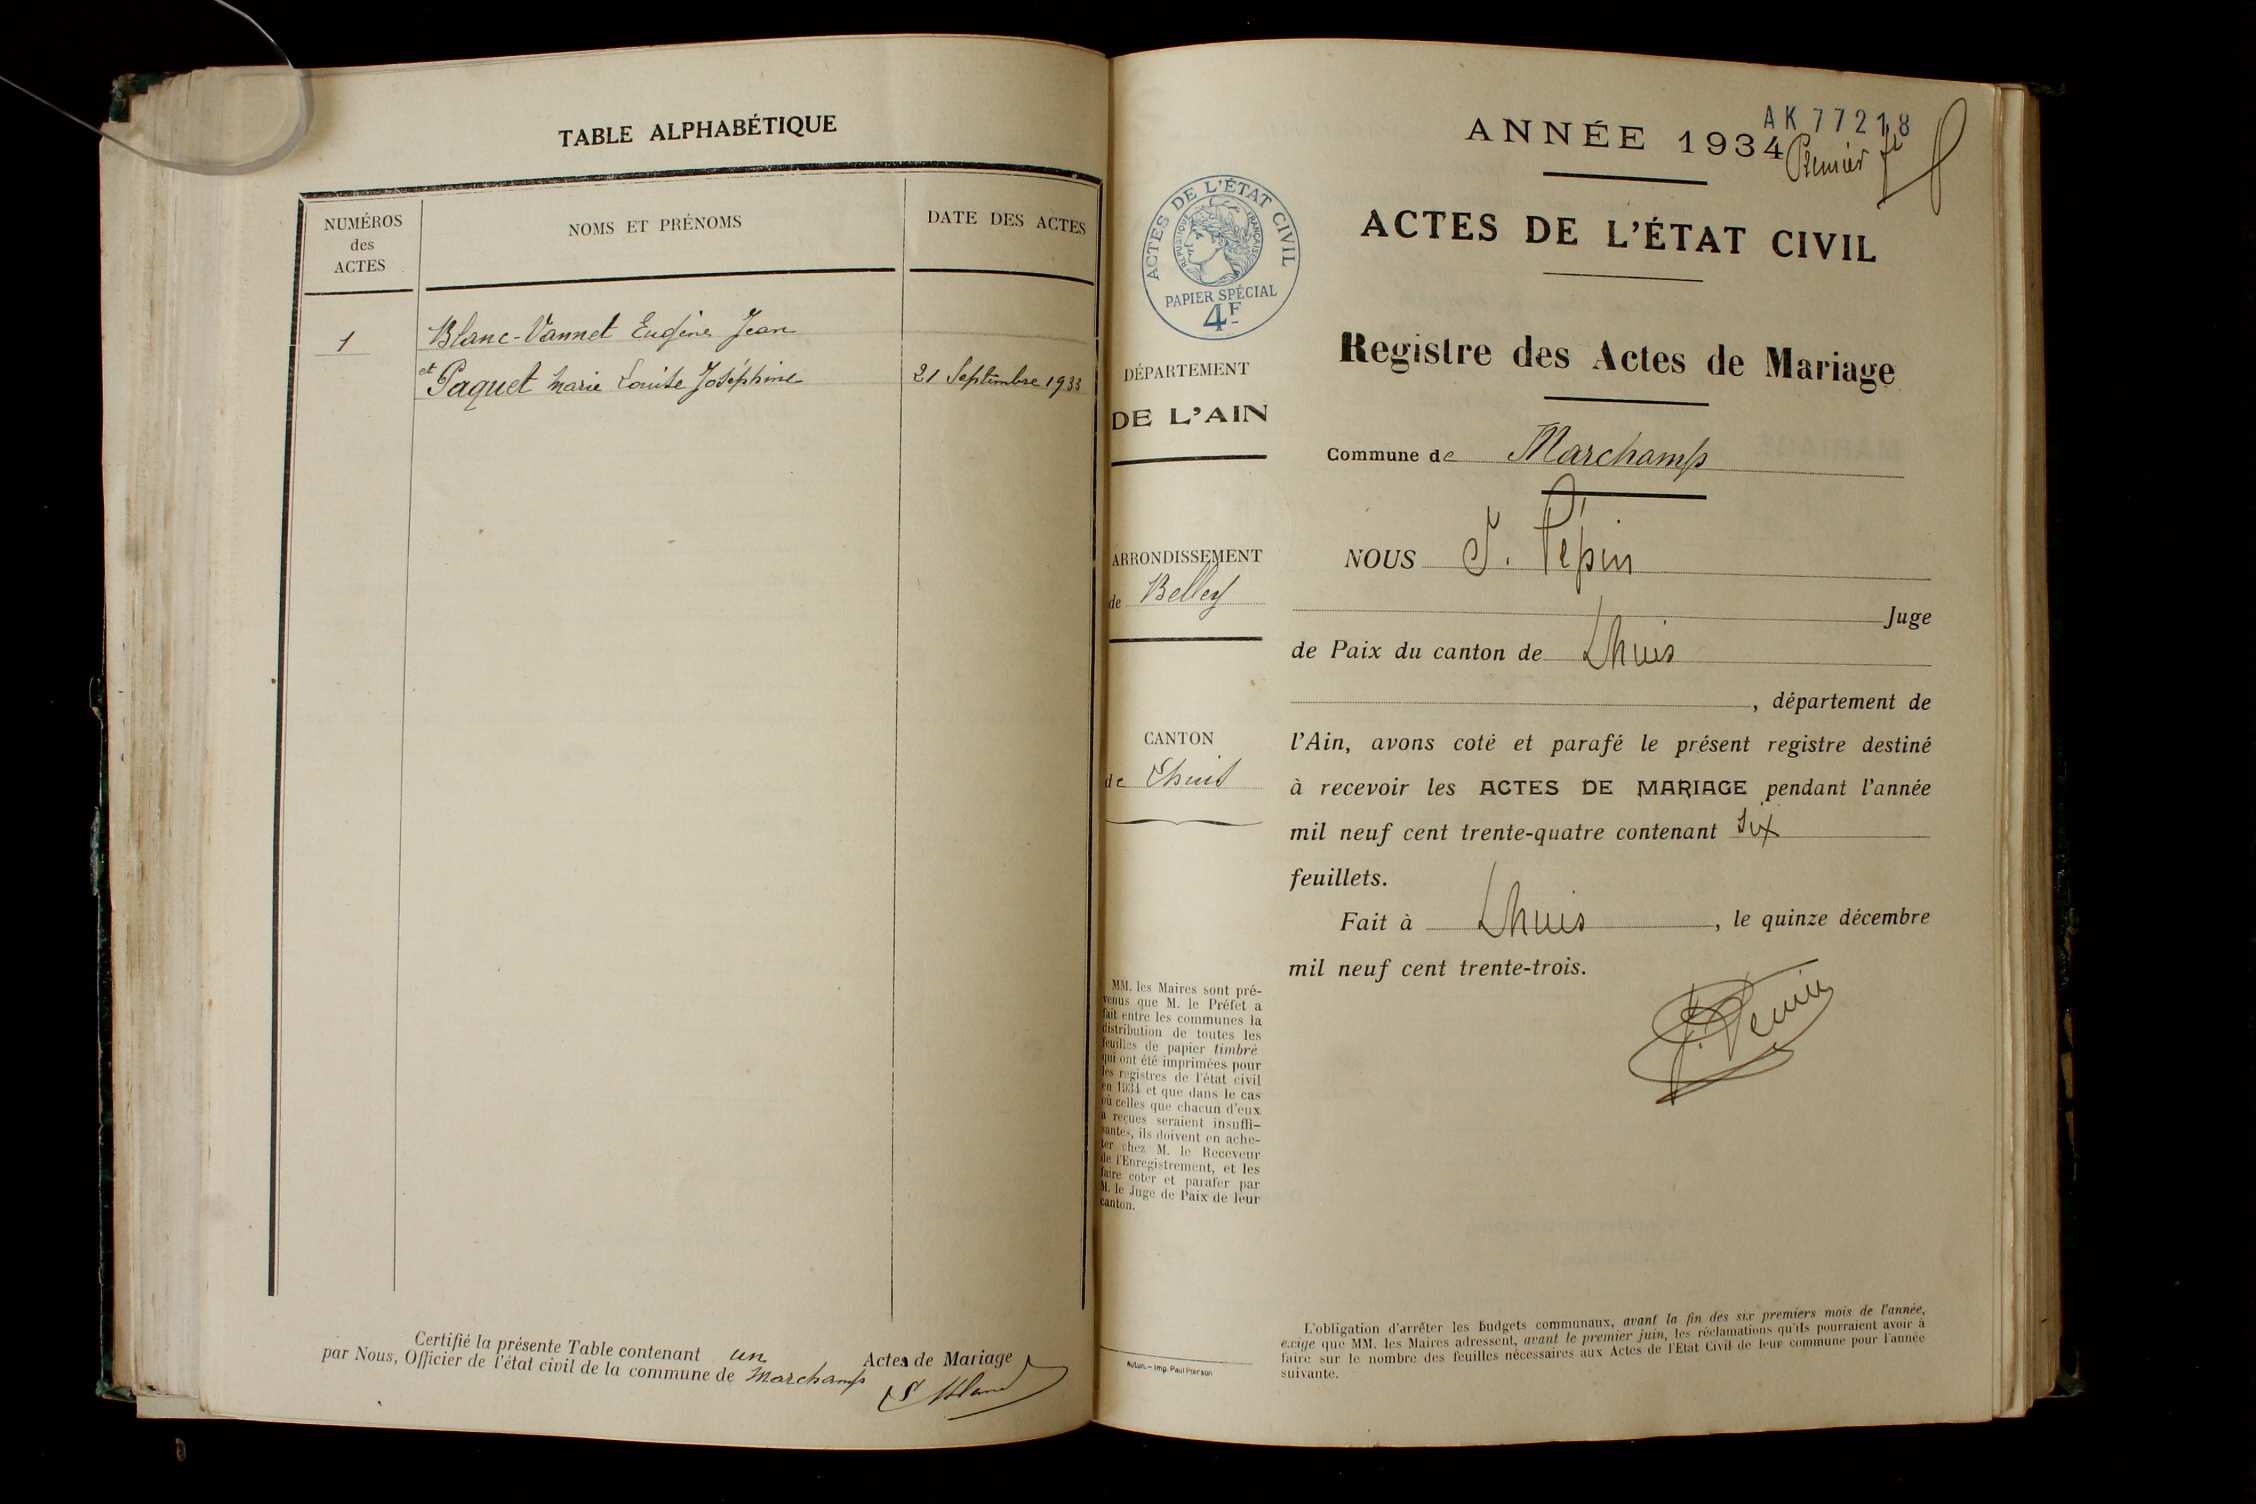 TABLE ALPHABÉTIQUE
NUMÉROS
des
ACTES
NOMS ET PRÉNOMS
DATE DES ACTES
1
Blanc-Vannet Eugène Jean
et Paquet Marie Louise Joséphine
21 Septembre 1933
Certifié la présente Table contenant un Actes de Mariage
par Nous, Officier de l'état civil de la commune de Marchamp
AK 77218
ANNÉE 1934
Premier fet
ACTES DE L'ÉTAT CIVIL
ACTES DE L'ÉTAT CIVIL
RÉPUBLIQUE FRANÇAISE
PAPIER SPÉCIAL
4F
Registre des Actes de Mariage
DÉPARTEMENT
DE L'AIN
Commune de Marchamp
ARRONDISSEMENT
de Belley
CANTON
de Lhuis
NOUS J. Pépin
Juge
de Paix du canton de Lhuis
, département de
l'Ain, avons coté et parafé le présent registre destiné
à recevoir les ACTES DE MARIAGE pendant l'année
mil neuf cent trente-quatre contenant Six
feuillets.
Fait à Lhuis, le quinze décembre
mil neuf cent trente-trois.
J. Pepin
MM. les Maires sont pré-
venus que M. le Préfet a
fait entre les communes la
distribution de toutes les
feuilles de papier timbré
qui ont été imprimées pour
les registres de l'état civil
en 1934 et que dans le cas
où celles que chacun d'eux
a reçues seraient insuffi-
santes, ils doivent en ache-
ter chez M. le Receveur
de l'Enregistrement, et les
faire coter et parafer par
M. le Juge de Paix de leur
canton.
Autun. – Imp. Paul Pierson
L'obligation d'arrêter les budgets communaux, avant la fin des six premiers mois de l'année,
exige que MM. les Maires adressent, avant le premier juin, les réclamations qu'ils pourraient avoir à
faire sur le nombre des feuilles nécessaires aux Actes de l'État Civil de leur commune pour l'année
suivante.